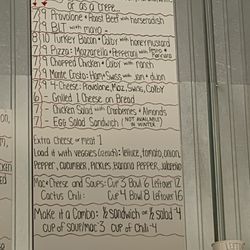 or as a crepe...
7/9 Provolone + Roast Beef with horseradish
7/9 BLT with mayo -
8/10 Turkey Bacon + Colby with honey mustard
7/9 Pizza: Mozzarella + Pepperoni with
7/9 Chopped Chicken + Colby with ranch
7/9 Monte Cristo: Ham + Swiss with jam + dijon
7/9 4-Cheese: Provolone, Moz, Swiss, Colby
6/- Grilled 1 Cheese on Bread
7/- Chicken Salad with Cranberries + Almonds
7/- Egg Salad Sandwich (NOT AVAILABLE IN WINTER)
Extra Cheese or meat 1
Load it with veggies (each): lettuce, tomato, onion,
Pepper, cucumber, Pickles, Banana Pepper, Jalapeño
Mac + Cheese and Soups: Cup 3 Bowl 6 Leftover 12
Cactus Chili: Cup 4 Bowl 8 Leftover 16
Make it a Combo: 1/2 sandwich or 1/2 salad 4
cup of soup/mac 3 cup of chili 4